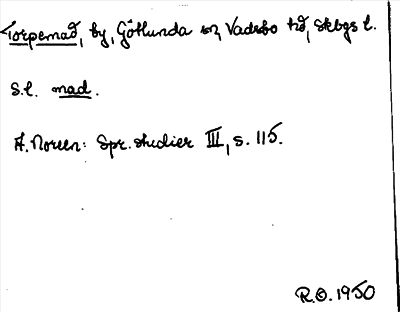 Torpemad, by, Götlunda sn, Vadsbo hd, Skbgs l.
S.l. mad.
A. Noreen: Spr. studier III, s. 115.
R.O. 1950